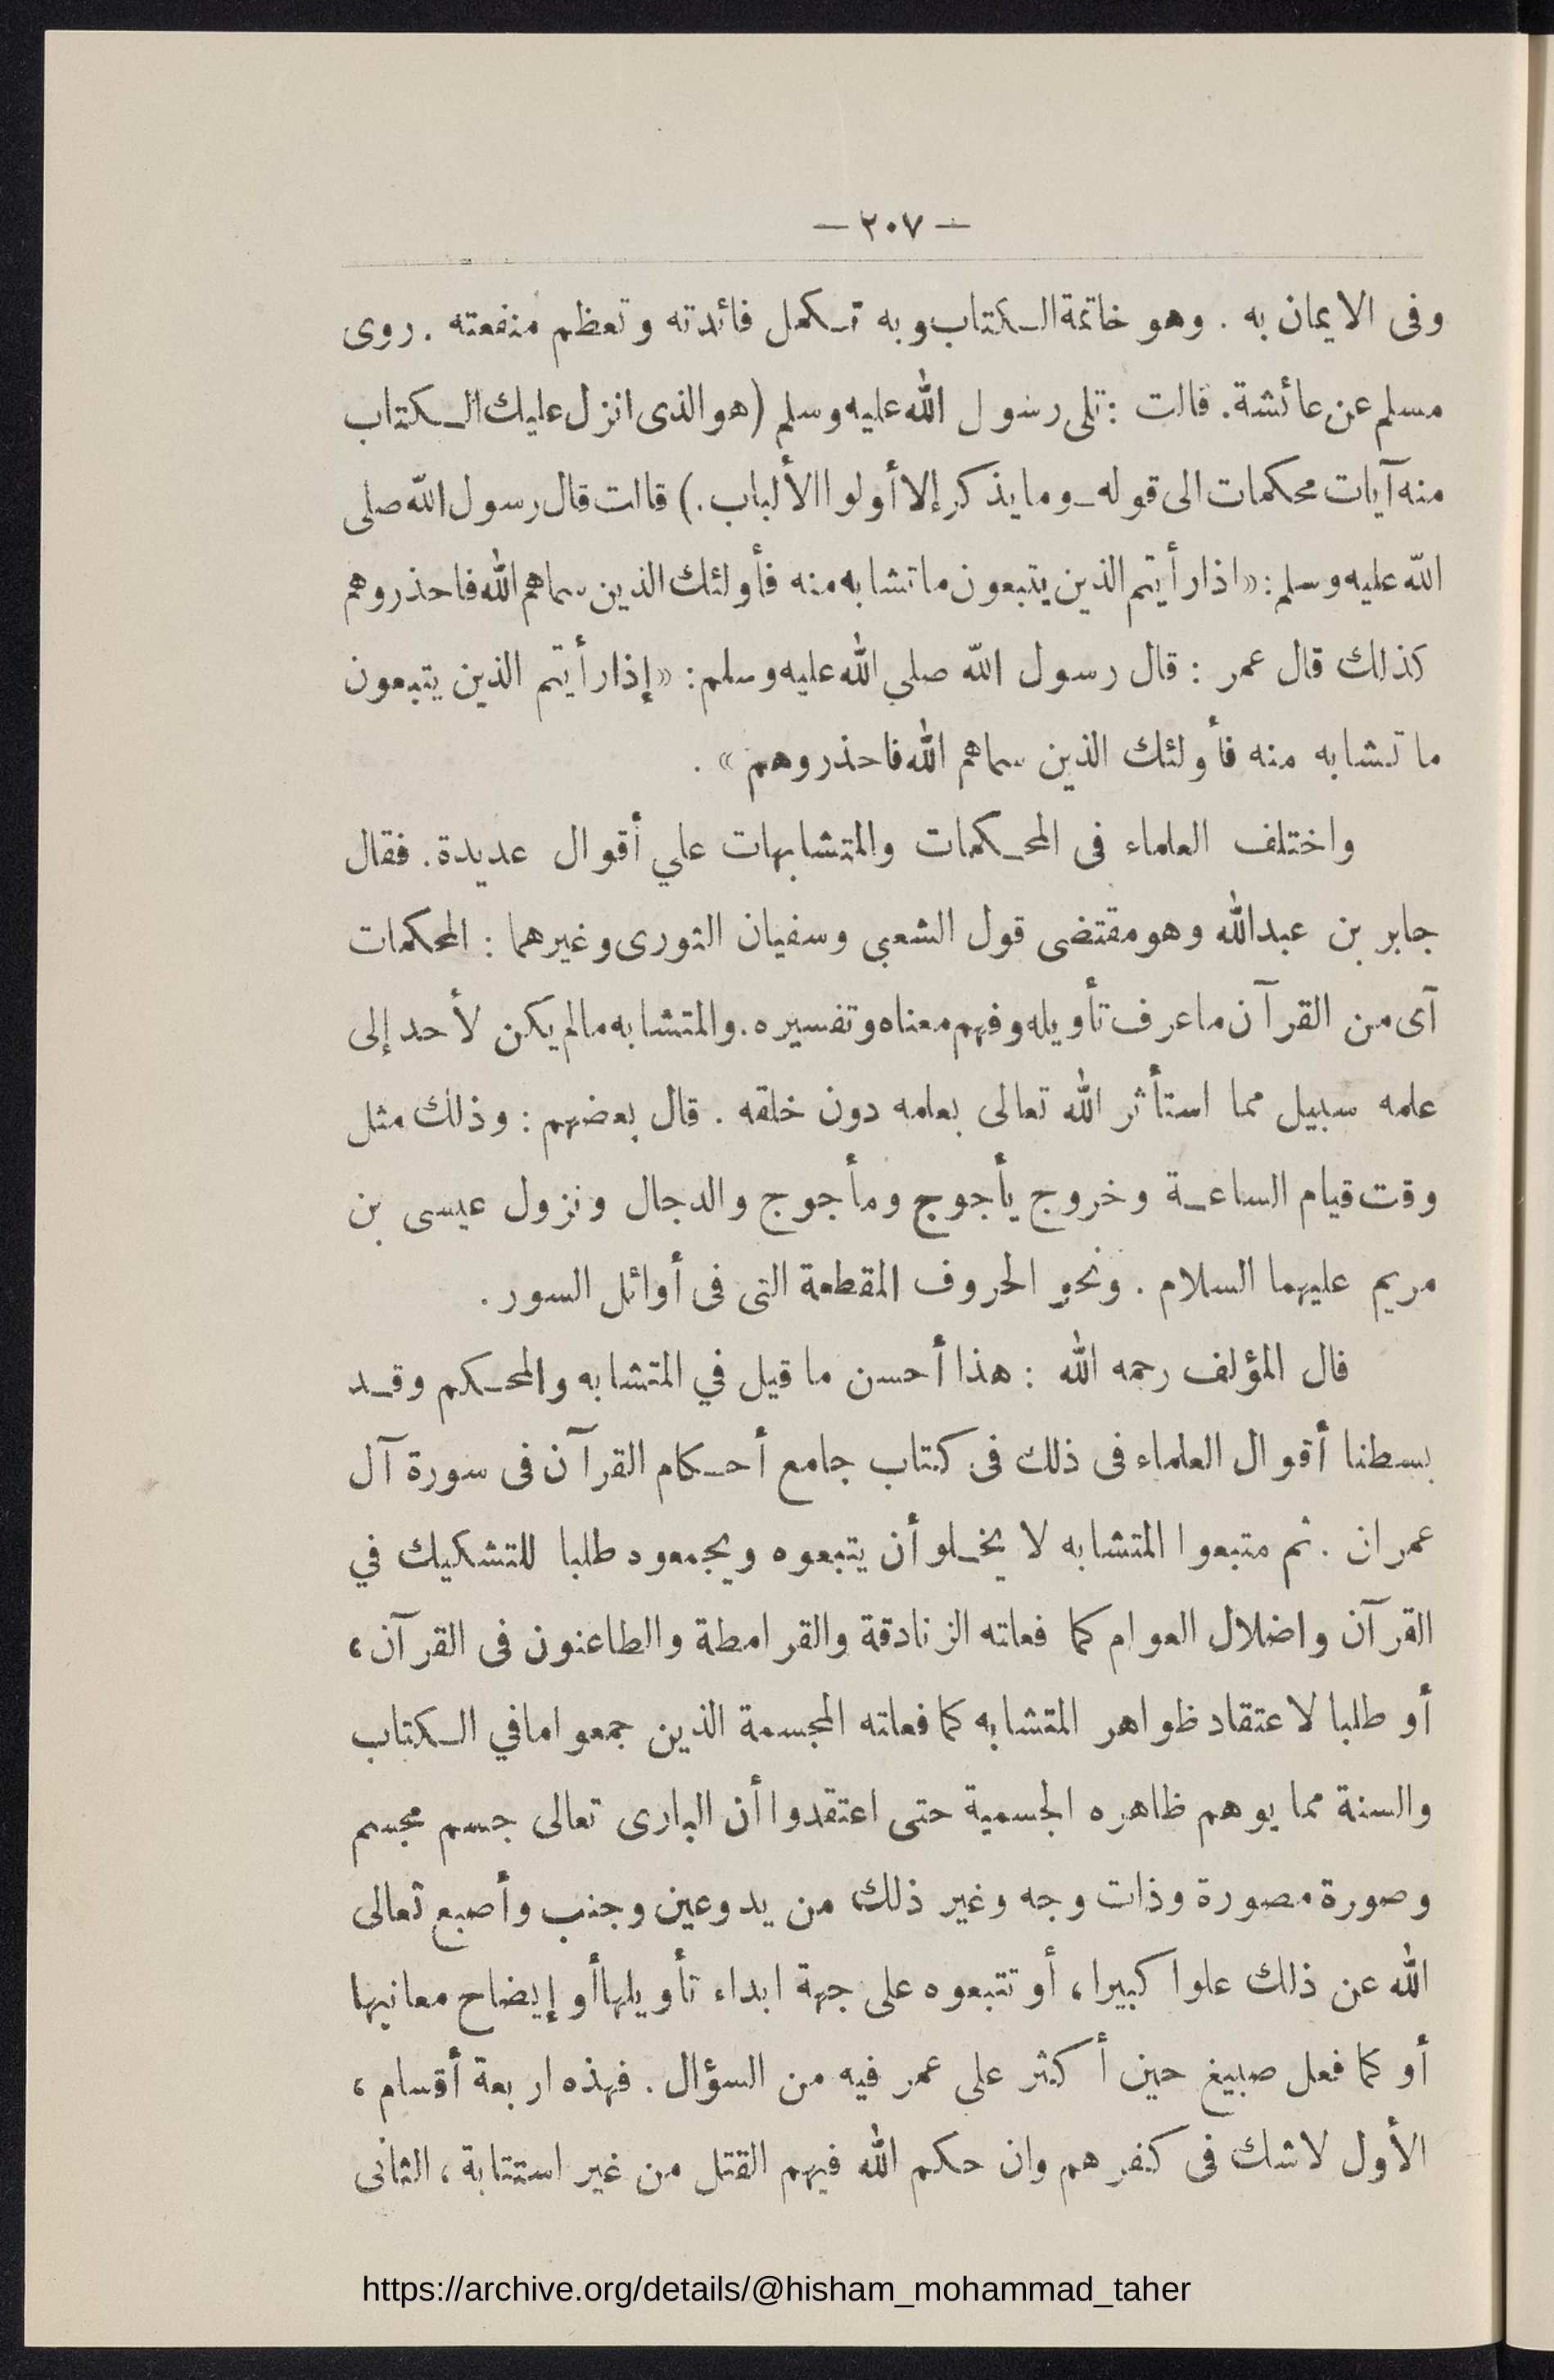 — ٢٠٧ —
وفى الايمان به . وهو خاتمة الكتاب وبه تكمل فائدته وتعظم منفعته . روى
مسلم عن عائشة . قالت : تلى رسول الله عليه وسلم (هو الذى انزل عليك الكتاب
منه آيات محكمات الى قوله ـ وما يذكر إلا أولوا الألباب .) قالت قال رسول الله صلى
الله عليه وسلم : «اذا رأيتم الذين يتبعون ما تشابه منه فأولئك الذين سماهم الله فاحذروهم
كذلك قال عمر : قال رسول الله صلي الله عليه وسلم : «إذا رأيتم الذين يتبعون
ما تشابه منه فأولئك الذين سماهم الله فاحذروهم» .
واختلف العلماء فى المحكمات والمتشابهات علي أقوال عديدة . فقال
جابر بن عبدالله وهو مقتضى قول الشعبي وسفيان الثورى وغيرهما : المحكمات
آى من القرآن ما عرف تأويله وفهم معناه وتفسيره . والمتشابه مالم يكن لأحد إلى
علمه سبيل مما استأثر الله تعالى بعلمه دون خلقه . قال بعضهم : وذلك مثل
وقت قيام الساعة وخروج يأجوج ومأجوج والدجال ونزول عيسى بن
مريم عليهما السلام . ونحو الحروف المقطعة التى فى أوائل السور .
قال المؤلف رحمه الله : هذا أحسن ما قيل في المتشابه والمحكم وقد
بسطنا أقوال العلماء فى ذلك فى كتاب جامع أحكام القرآن فى سورة آل
عمران . ثم متبعوا المتشابه لا يخلو أن يتبعوه ويجمعوه طلبا للتشكيك في
القرآن واضلال العوام كما فعلته الزنادقة والقرامطة والطاعنون فى القرآن ،
أو طلبا لاعتقاد ظواهر المتشابه كما فعلته المجسمة الذين جمعوا مافي الكتاب
والسنة مما يوهم ظاهره الجسمية حتى اعتقدوا أن البارى تعالى جسم مجسم
وصورة مصورة وذات وجه وغير ذلك من يد وعين وجنب وأصبع تعالى
الله عن ذلك علوا كبيرا ، أو تتبعوه على جهة ابداء تأويلها أو إيضاح معانيها
أو كما فعل صبيغ حين أكثر على عمر فيه من السؤال . فهذه اربعة أقسام ،
الأول لاشك فى كفرهم وان حكم الله فيهم القتل من غير استتابة ، الثانى
https://archive.org/details/@hisham_mohammad_taher